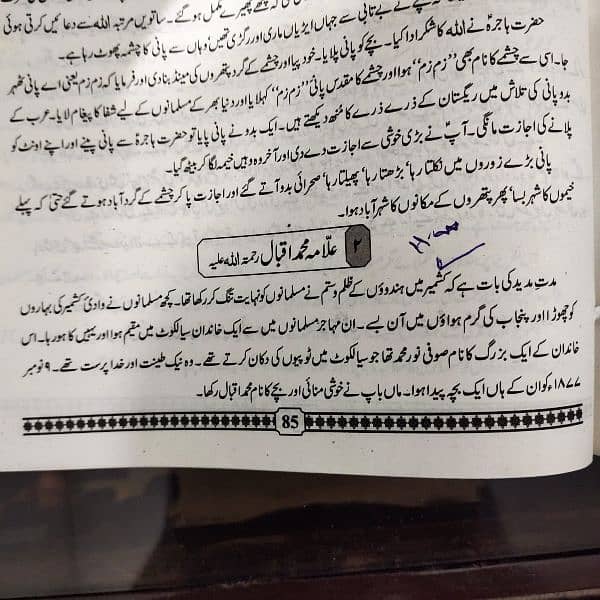 پھیرے مکمل ہو گئے۔ ساتویں مرتبہ اللہ سے دعائیں کرتی ہوئی
حضرت ہاجرہؓ نے اللہ کا شکر ادا کیا۔ بچے کو پانی پلایا۔ خود پیا اور چشمے کے گرد پتھروں کی مینڈ بنا دی اور فرمایا کہ زم زم یعنی اے پانی ٹھہر
جا۔ اسی سے چشمے کا نام بھی ”زم زم“ ہوا اور چشمے کا مقدس پانی ”زم زم“ کہلایا اور دنیا بھر کے مسلمانوں کے لیے شفا کا پیغام لایا۔ عرب کے
بدو پانی کی تلاش میں ریگستان کے ذرے ذرے کا منھ دیکھتے ہیں۔ ایک بدو نے پانی پایا تو حضرت ہاجرہؓ سے پانی پینے اور اپنے اونٹ کو
پلانے کی اجازت مانگی۔ آپؓ نے بڑی خوشی سے اجازت دے دی اور آخر وہ وہیں خیمہ لگا کر بیٹھ گیا۔
پانی بڑے زوروں میں نکلتا رہا‘ بڑھتا رہا‘ پھیلتا رہا‘ صحرائی بدو آتے گئے اور اجازت پا کر چشمے کے گرد آباد ہوتے گئے حتیٰ کہ پہلے
خیموں کا شہر بسا‘ پھر پتھروں کے مکانوں کا شہر آباد ہوا۔
۲ علامہ محمد اقبال رحمۃ اللہ علیہ
مدتِ مدید کی بات ہے کہ کشمیر میں ہندوؤں کے ظلم و ستم نے مسلمانوں کو نہایت تنگ کر رکھا تھا۔ کچھ مسلمانوں نے وادیٔ کشمیر کی بہاروں
کو چھوڑا اور پنجاب کی گرم ہواؤں میں آن بسے۔ ان مہاجر مسلمانوں میں سے ایک خاندان سیالکوٹ میں مقیم ہوا اور یہیں کا ہو رہا۔ اس
خاندان کے ایک بزرگ کا نام صوفی نور محمد تھا جو سیالکوٹ میں ٹوپیوں کی دکان کرتے تھے۔ وہ نیک طینت اور خدا پرست تھے۔ ۹ نومبر
۱۸۷۷ء کو ان کے ہاں ایک بچہ پیدا ہوا۔ ماں باپ نے خوشی منائی اور بچے کا نام محمد اقبال رکھا۔
85